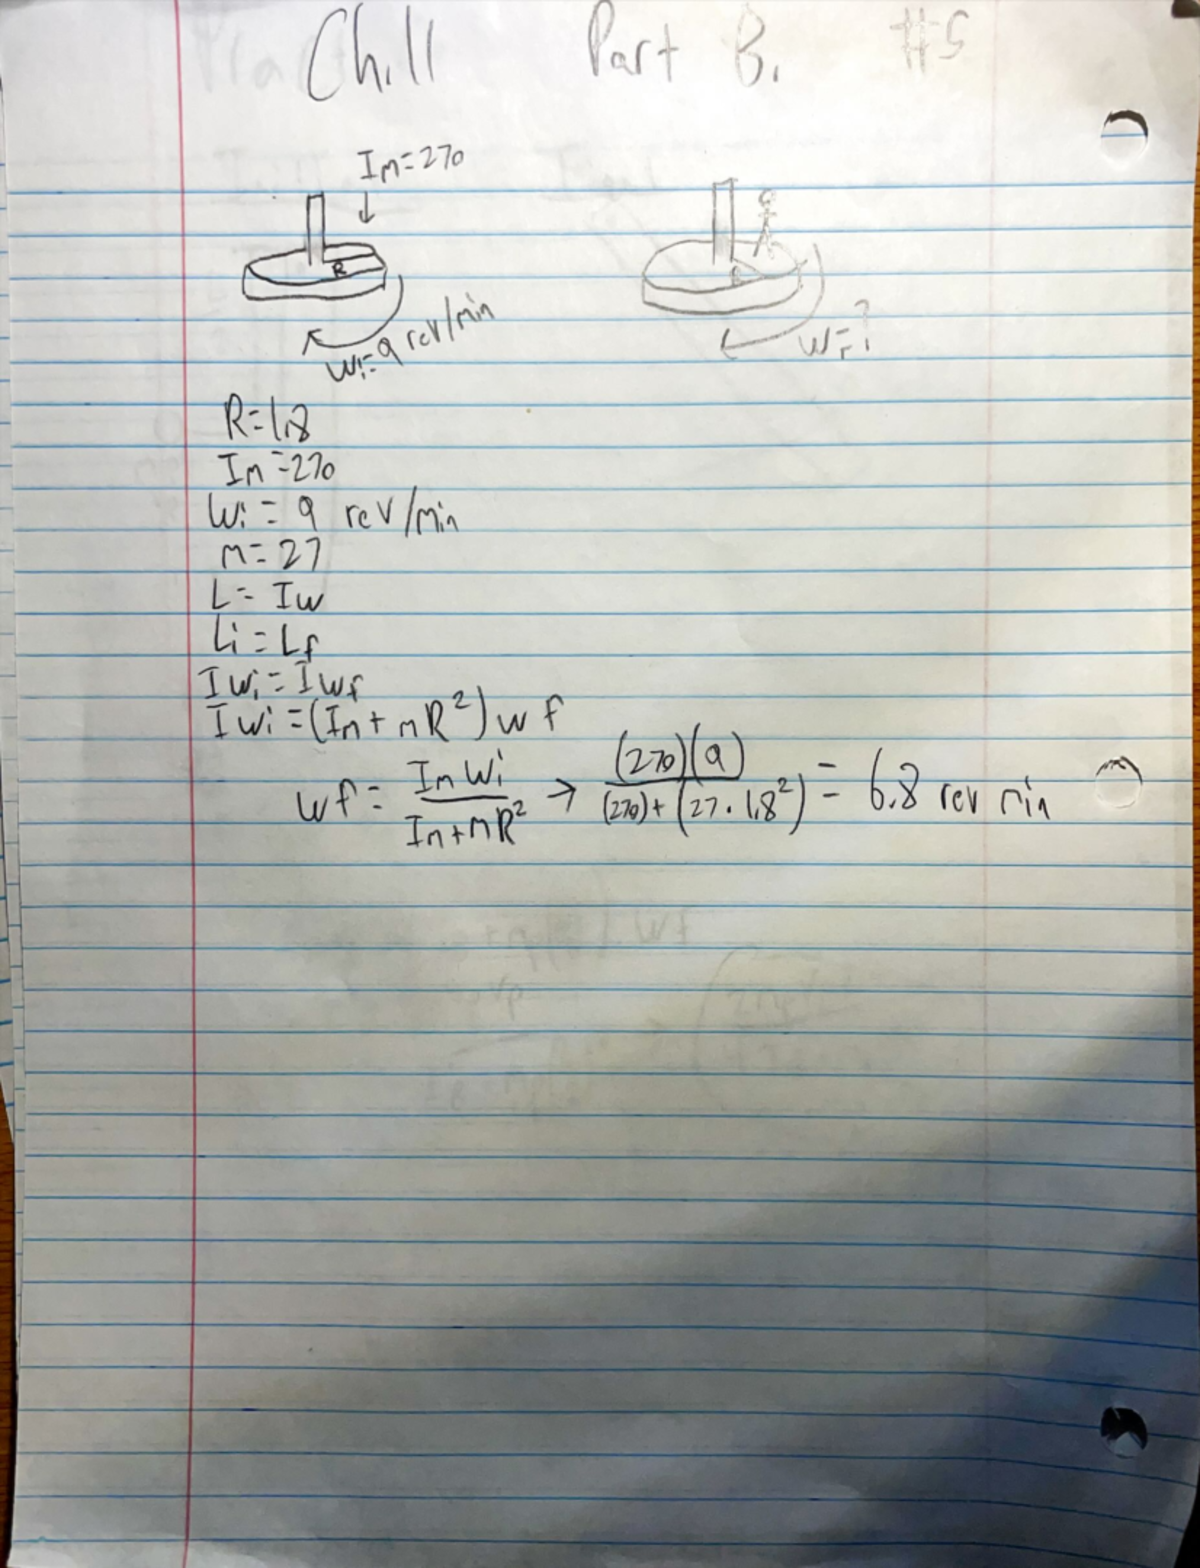 Chill Part B. #5
Im=270
R
wi=9 rev/min
wf=?
R=1.8
Im=270
Wi=9 rev/min
m=27
L=Iw
Li=Lf
Iwi=Iwf
Iwi=(Im+mR²)wf
wf=Im Wi/Im+mR² → (270)(9)/(270)+(27·1.8²)=6.8 rev min